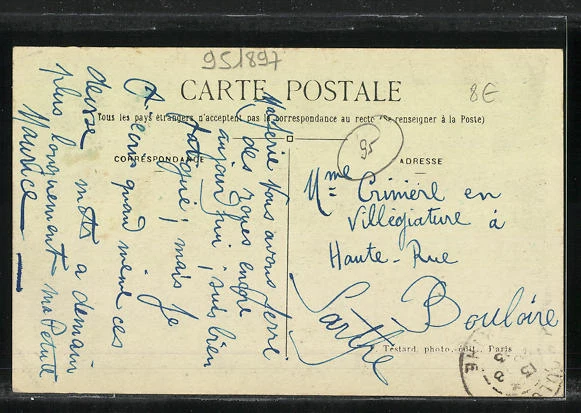 951897
CARTE POSTALE
8€
Tous les pays étrangers n'acceptent pas la correspondance au recto (se renseigner à la Poste)
95
CORRESPONDANCE
ADRESSE
nous avons
des
aujourd'hui ; suis bien
fatigué ; mais je
t'écris quand même ces
deux mots a demain
plus longuement ma Petite
Maurice
Mme Crinière en
Villégiature à
Haute-Rue
Bouloire
Sarthe
Testard, photo.-édit., Paris